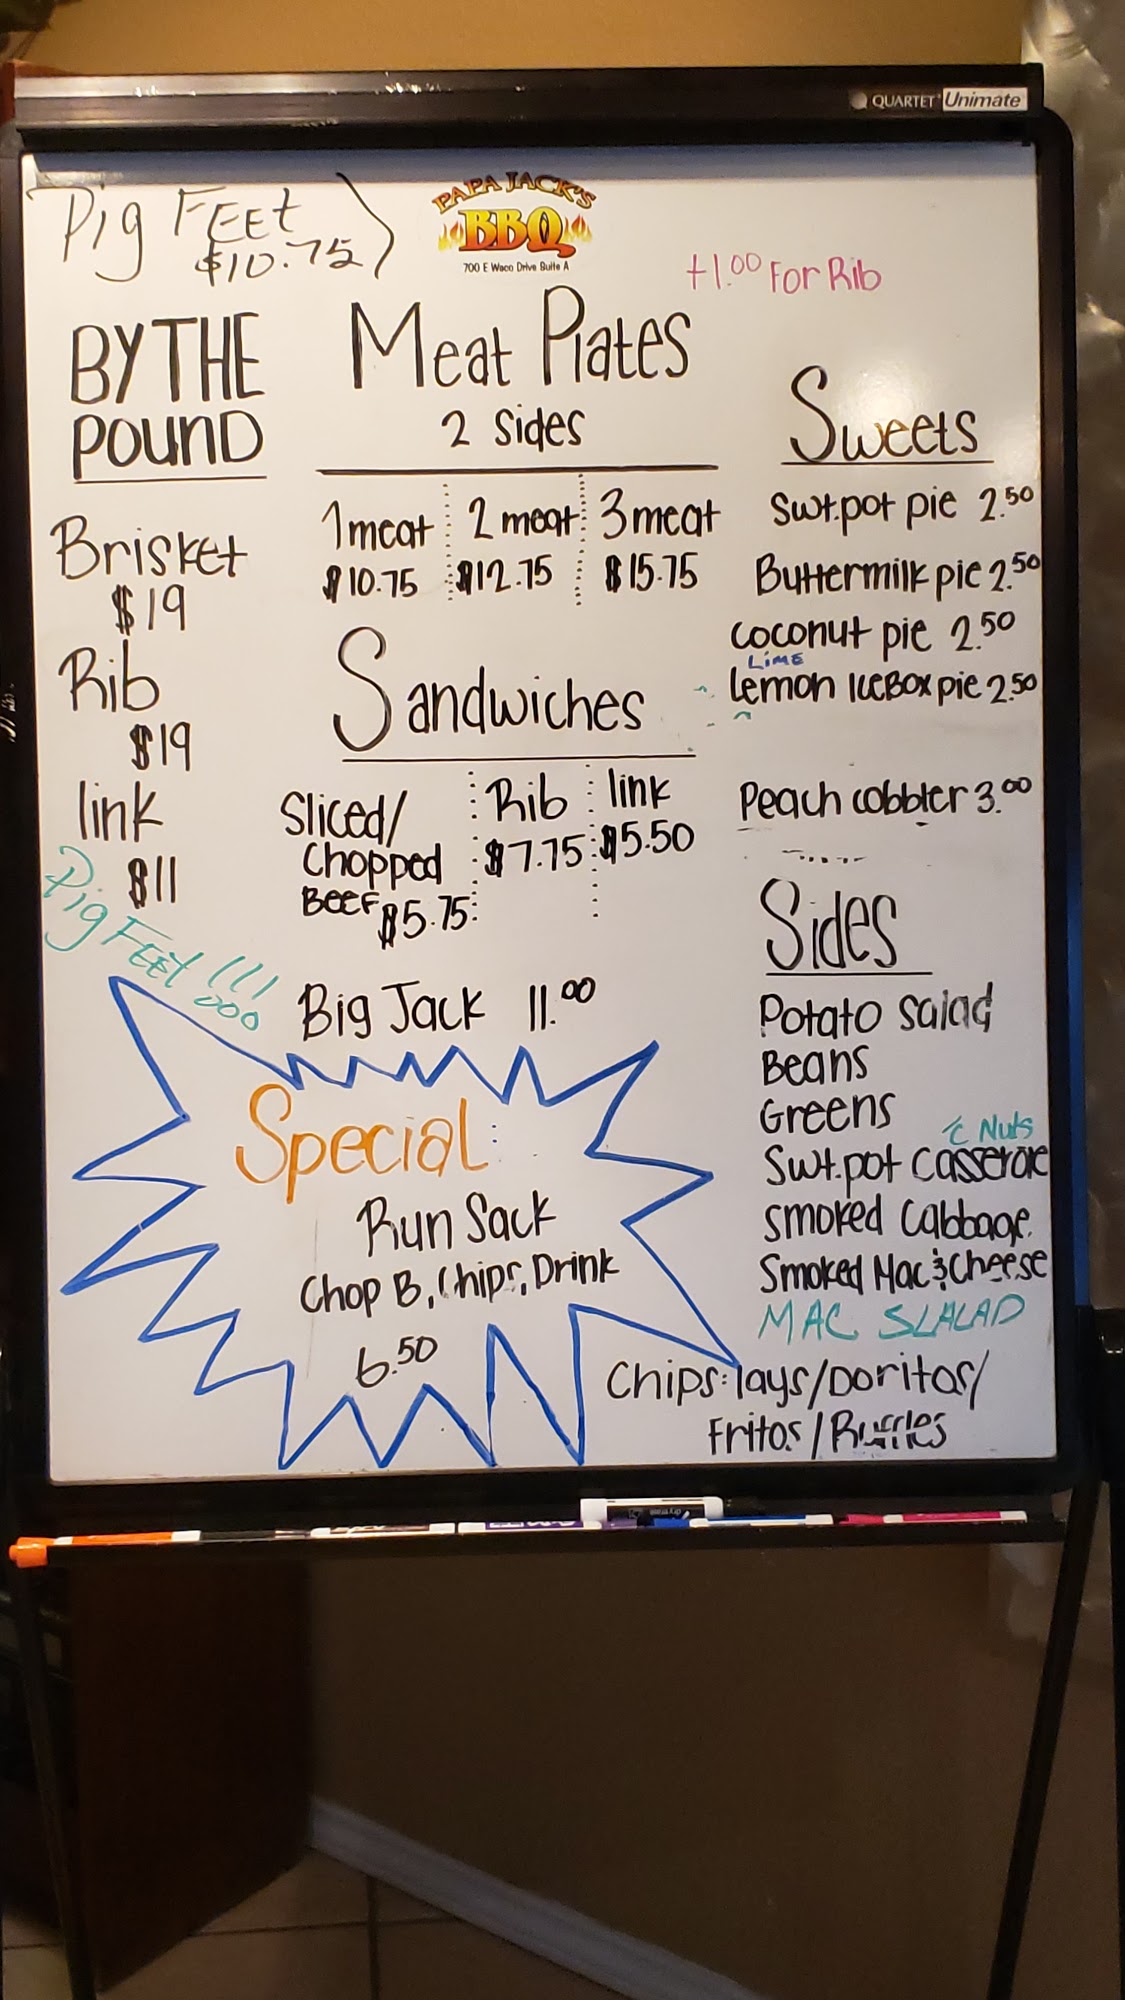 QUARTET Unimate
Pig FEEt
$10.75
PAPA JACK'S
BBQ
700 E Waco Drive Suite A
+1.00 For Rib
BY THE
POUND
Brisket
$19
Rib
$19
link
$11
Pig FEEt !!!
Meat Plates
2 sides
1 meat 2 meat 3 meat
$10.75 $12.75 $15.75
Sandwiches
Sliced/
Chopped
BEEF $5.75
Rib
$7.75
link
$5.50
Big Jack 11.00
Special:
Run Sack
Chop B, Chips, Drink
6.50
Sweets
Swt.pot pie 2.50
Buttermilk pie 2.50
coconut pie 2.50
Lime
lemon ICEBOX pie 2.50
Peach cobbler 3.00
Sides
Potato salad
Beans
Greens
c Nuts
Swt.pot Casserole
smoked Cabbage
Smoked Mac & Cheese
MAC SLALAD
Chips: lays/Doritos/
Fritos/Ruffles